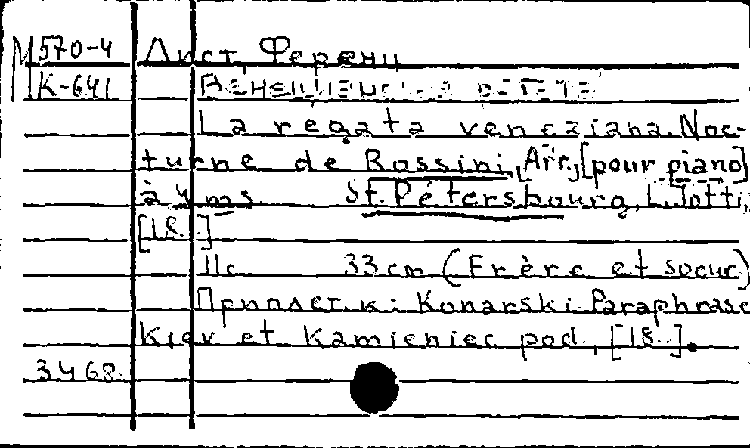 М 570-4 Лист, Ференц
К-641 Венецианская регата
La regata veneziana. Noc-
turne de Rossini, Arr. [pour piano]
à 4 ms St. Pétersbourg, L. Jotti,
[18. ]
11 c 33 cm (Frère et soeur)
Приплет. к: Konarski. Paraphrase
Kiev et Kamieniec pod., [18. ].
3468.